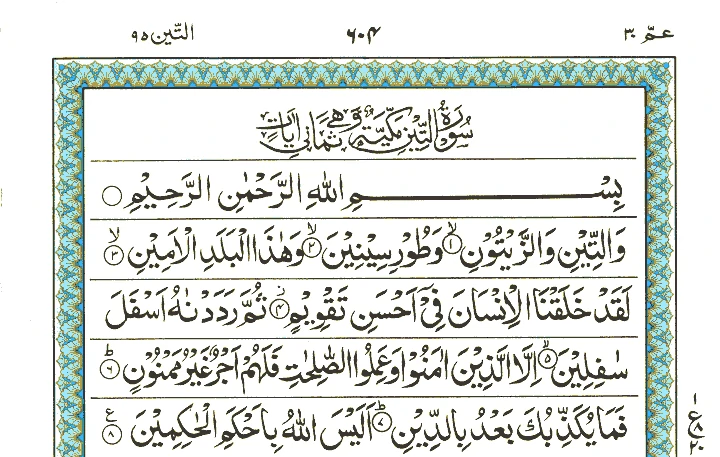 عمّ ۳۰
۶۰۴
التّين ۹۵
سُوْرَةُ التِّيْنِ مَكِّيَّةٌ وَّهِيَ ثَمَانِيْ اٰيَاتٍ
بِسْمِ اللهِ الرَّحْمٰنِ الرَّحِيْمِ ○
وَالتِّيْنِ وَالزَّيْتُوْنِ ۙ﴿۱﴾ وَطُوْرِ سِيْنِيْنَ ۙ﴿۲﴾ وَهٰذَا الْبَلَدِ الْاَمِيْنِ ۙ﴿۳﴾
لَقَدْ خَلَقْنَا الْاِنْسَانَ فِيْٓ اَحْسَنِ تَقْوِيْمٍ ۫﴿۴﴾ ثُمَّ رَدَدْنٰهُ اَسْفَلَ
سٰفِلِيْنَ ۙ﴿۵﴾ اِلَّا الَّذِيْنَ اٰمَنُوْا وَعَمِلُوا الصّٰلِحٰتِ فَلَهُمْ اَجْرٌ غَيْرُ مَمْنُوْنٍ ؕ﴿۶﴾
فَمَا يُكَذِّبُكَ بَعْدُ بِالدِّيْنِ ؕ﴿۷﴾ اَلَيْسَ اللهُ بِاَحْكَمِ الْحٰكِمِيْنَ ﴿۸﴾ ع
۱
ع
۸
۲۰